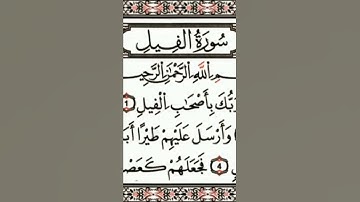 سُورَةُ الْفِيلِ
اللَّهِ الرَّحْمَٰنِ الرَّحِي
رَبُّكَ بِأَصْحَابِ الْفِيلِ ١
وَأَرْسَلَ عَلَيْهِمْ طَيْرًا أَبَا
٤ فَجَعَلَهُمْ كَعَصْ